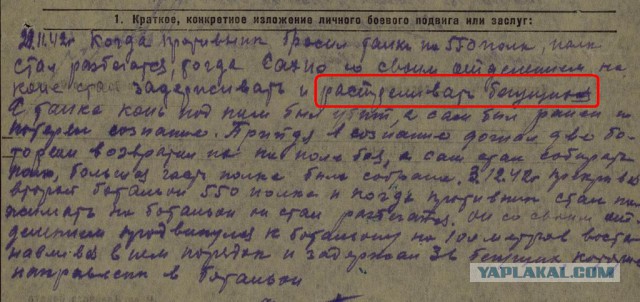 1. Краткое, конкретное изложение личного боевого подвига или заслуг:
29.11.42г. Когда противник бросил танки на 550 полк, полк
стал разбегатся, тогда со своим отделением на
коне стал задерживать и расстреливать бегущих
С танка конь под ним был убит, а сам был ранен и
потерял сознание. Прийдя в сознание догнал два бо-
и возвратил на поле боя, а сам стал собирать
полк, большая часть полка была собрана. 3.12.42г.
второй ботальон 550 полка и когда противник стал на-
жимать на ботальон он стал разбегатся. Он со своим от-
делением продвинулся к ботальону на 100 метров воста-
навливая в нем порядок и задержал 36 бегущих которые
направлены в ботальон
YAPLAKAL.COM